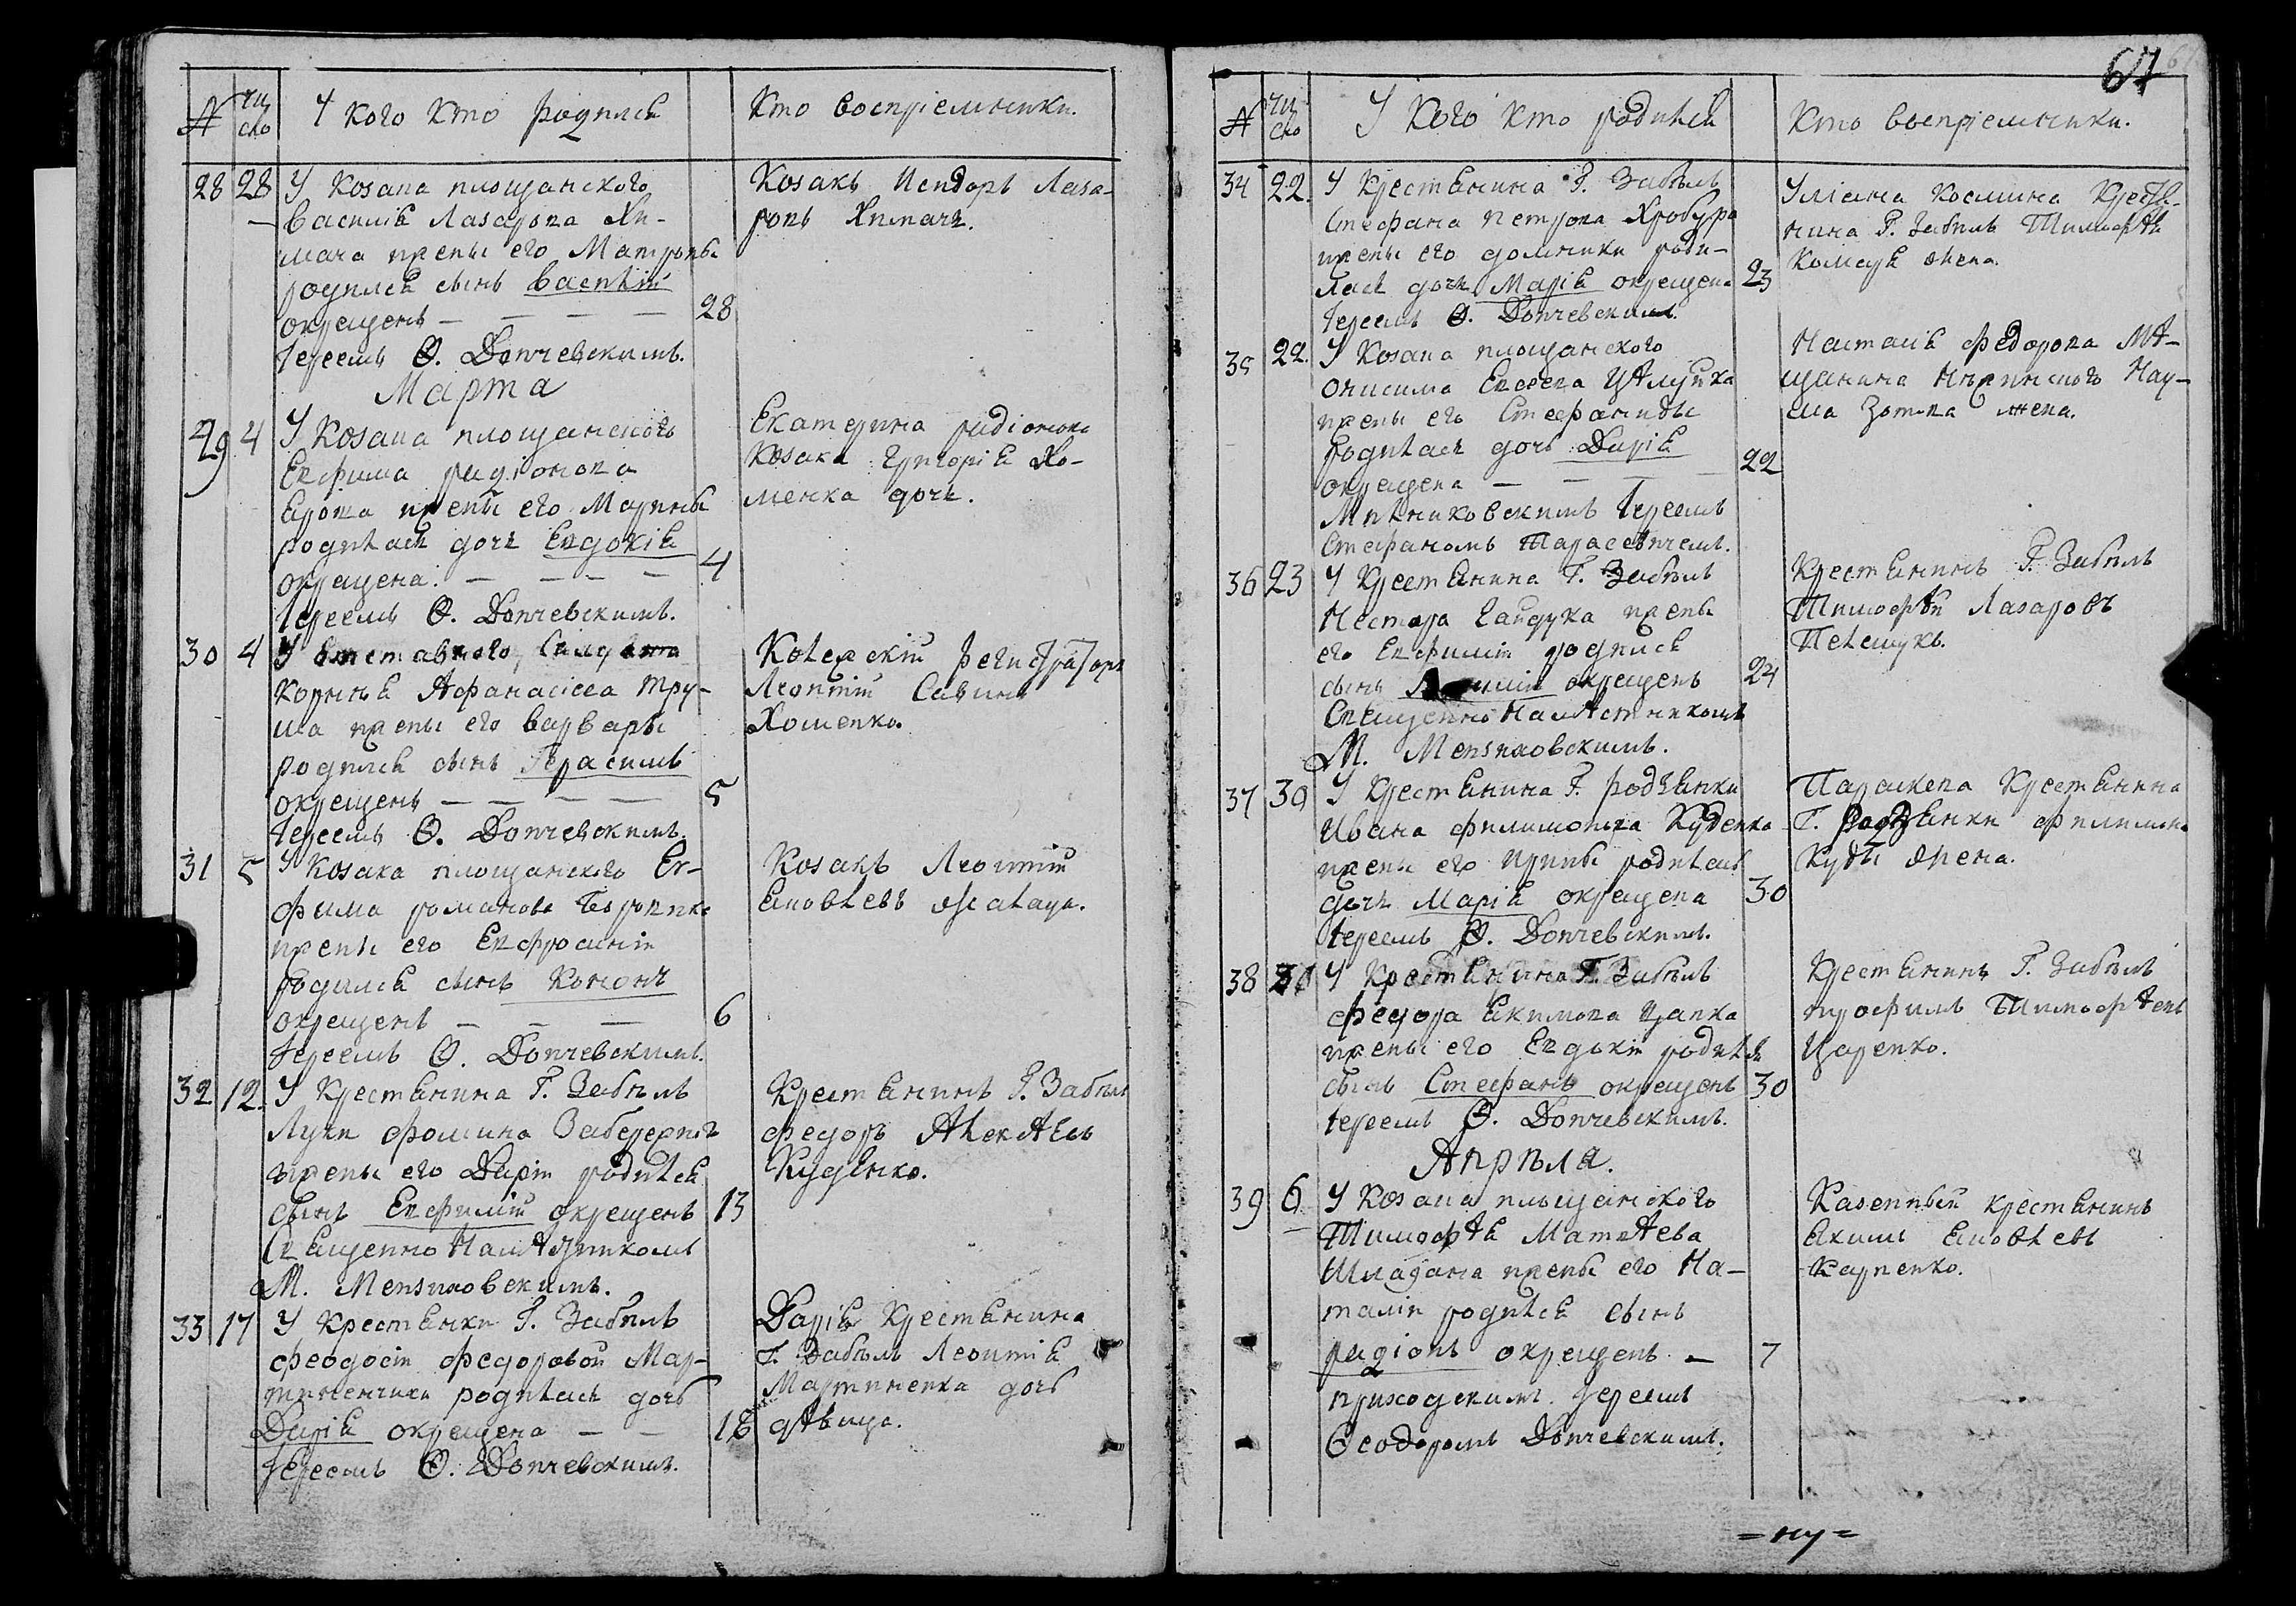 № чи
сло
У кого кто родился
Кто воспріемники.
28 28 У козака площанского
Василія Лазарова Хи-
мача жены его Матроны
родился сынъ Василій
окрещенъ — — — — 28
Іереемъ Ѳ. Дончевскимъ.
Козакъ Исидоръ Лаза-
ровъ Химачъ.
Марта
29 4 У козака площанского
Евфима Радіонова
жены его Марины
родилась дочь Евдокія
окрещена. — — — — 4
Іереемъ Ѳ. Дончевскимъ.
Екатерина Радіонова
козака Григорія Хо-
менка дочь.
30 4 У отставного Салдата
Корнія Афанасіева Тру-
ша жены его Варвары
родился сынъ Герасимъ
окрещенъ — — — — 5
Іереемъ Ѳ. Дончевскимъ.
Колежскій регистраторъ
Леонтій Савинъ
Хоменко.
31 5 У козака площанского Ев-
фима Романова
жены его Евфросиніи
родился сынъ Кононъ
окрещенъ — — — 6
Іереемъ Ѳ. Дончевскимъ.
Козакъ Леонтій
Яковлевъ
32 12. У крестянина Г. Забѣлъ
Луки Фомина
жены его Даріи родился
сынъ Евфимій окрещенъ 13
Священно Намѣстникомъ
М. Мензиховскимъ.
Крестянинъ Г. Забѣлъ
Федоръ Алексѣевъ
Куценко.
33 17 У крестянки Г. Забѣлъ
Феодосіи Федоровой Мар-
тиненчики родилась дочь
Дарія окрещена — — 18
Іереемъ Ѳ. Дончевскимъ.
Дарія крестянина
Г. Забѣлъ Леонтія
Мартиненка дочь
дѣвица.
67
№ чи
сло
У кого кто родился
Кто воспріемники.
34 22. У крестянина Г. Забѣлъ
Стефана Петрова
жены его Домники роди-
лась дочь Марія окрещена 23
Іереемъ Ѳ. Дончевскимъ.
Уліана Космина крестя-
нина Г. Забѣлъ Тимофѣя
жена.
35 22. У козака площанского
Онисима Евсеева
жены его Стефаниды
родилась дочь Дарія
окрещена — — — — 22
Іереемъ
Стефаномъ Тарасевичемъ.
Настасія Федорова Мѣ-
щанина Нѣжинского Нау-
ма Зотова жена.
36 23 У крестянина Г. Забѣлъ
Нестора Гайдука жены
его Евфиміи родился
сынъ окрещенъ 24
Священно Намѣстникомъ
М. Мензиховскимъ.
Крестянинъ Г. Забѣлъ
Тимофѣй Лазаровъ
37 30 У крестянина Г. Родзянки
Ивана Филимонова Куденка
жены его Ирины родилась
дочь Марія окрещена 30
Іереемъ Ѳ. Дончевскимъ.
Параскева крестянина
Г. Родзянки Филимона
Куды жена.
38 30 У крестянина Г. Забѣлъ
Федора Екимова Цапка
жены его Евдокіи родился
сынъ Стефанъ окрещенъ 30
Іереемъ Ѳ. Дончевскимъ.
Крестянинъ Г. Забѣлъ
Трофимъ Тимофѣевъ
Царенко.
Апрѣля.
39 6 У козака площанского
Тимофѣя Матвѣева
жены его На-
таліи родился сынъ
Радіонъ окрещенъ — 7
приходскимъ Іереемъ
Ѳеодоромъ Дончевскимъ.
Казенный крестянинъ
Якимъ Яковлевъ
Карпенко.
=ну=